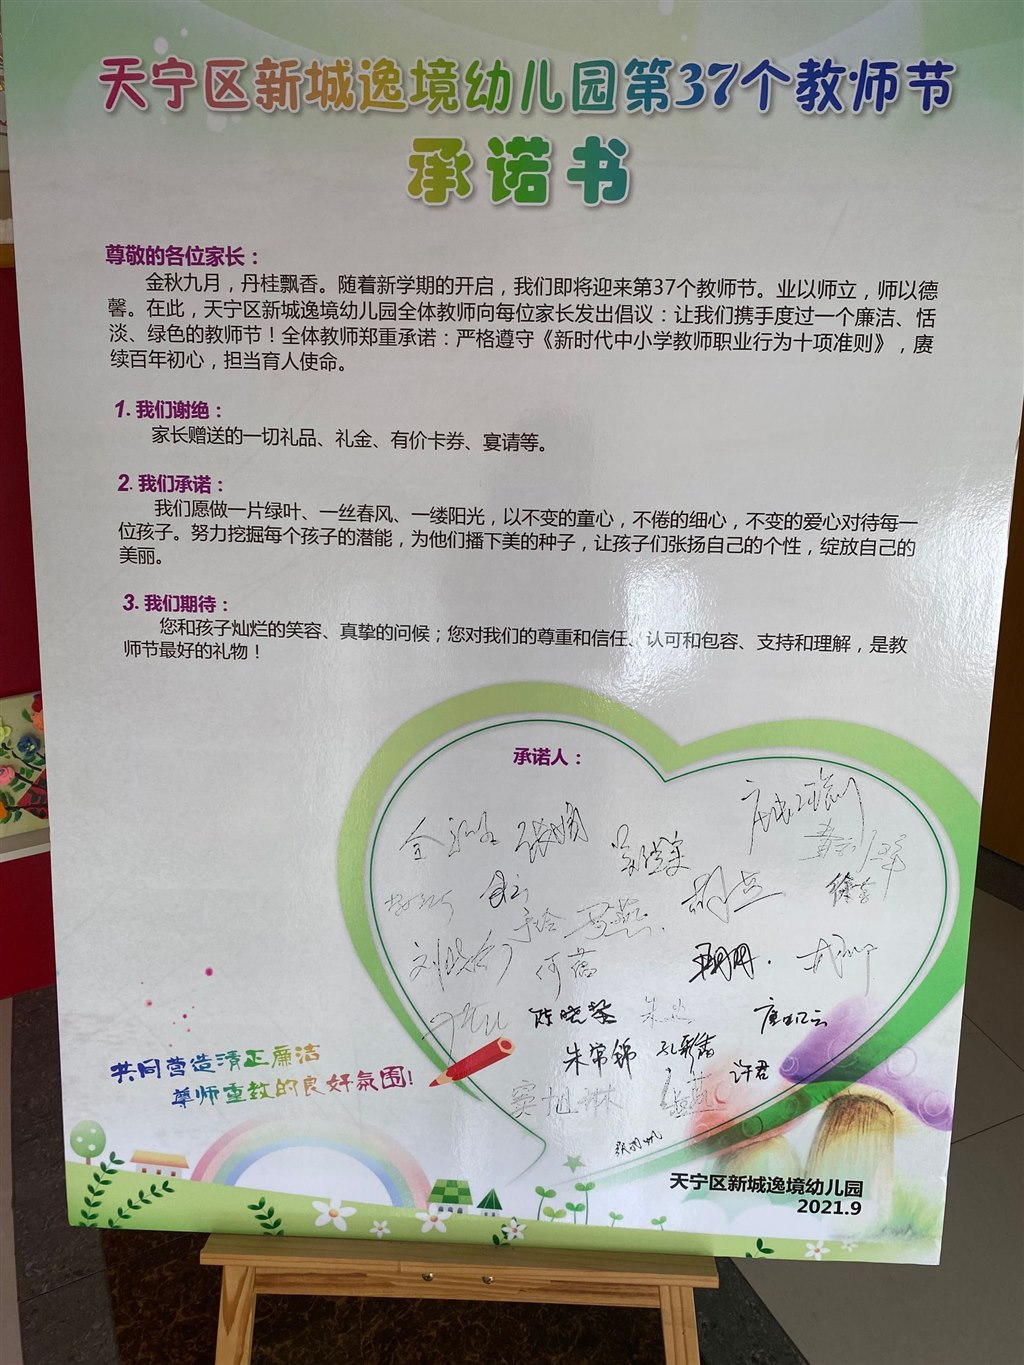 天宁区新城逸境幼儿园第37个教师节
承诺书
尊敬的各位家长：
金秋九月，丹桂飘香。随着新学期的开启，我们即将迎来第37个教师节。业以师立，师以德
馨。在此，天宁区新城逸境幼儿园全体教师向每位家长发出倡议：让我们携手度过一个廉洁、恬
淡、绿色的教师节！全体教师郑重承诺：严格遵守《新时代中小学教师职业行为十项准则》，赓
续百年初心，担当育人使命。
1. 我们谢绝：
家长赠送的一切礼品、礼金、有价卡券、宴请等。
2. 我们承诺：
我们愿做一片绿叶、一丝春风、一缕阳光，以不变的童心，不倦的细心，不变的爱心对待每一
位孩子。努力挖掘每个孩子的潜能，为他们播下美的种子，让孩子们张扬自己的个性，绽放自己的
美丽。
3. 我们期待：
您和孩子灿烂的笑容、真挚的问候；您对我们的尊重和信任、认可和包容、支持和理解，是教
师节最好的礼物！
承诺人：
马燕
徐
何蓓
陈晓莹
朱常锦
孔彩香
许君
窦旭琳
共同营造清正廉洁
尊师重教的良好氛围!
天宁区新城逸境幼儿园
2021.9